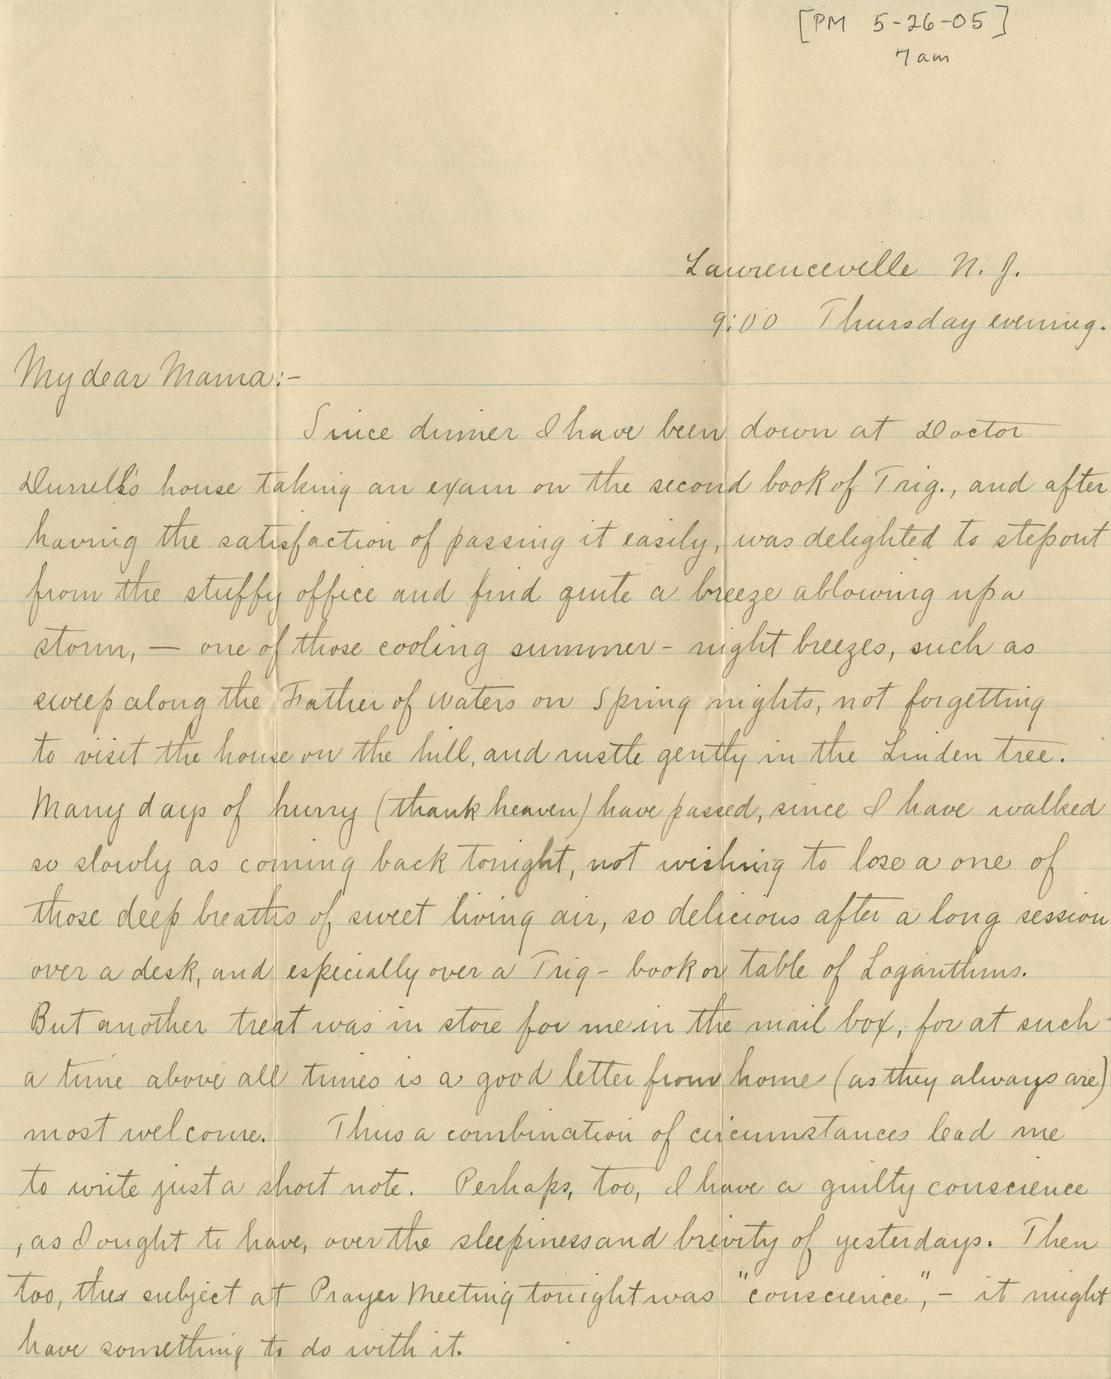 [PM 5-26-05]
7 am
Lawrenceville N. J.
9:00 Thursday evening.
My dear Mama:-
Since dinner I have been down at Doctor
Durrell's house taking an exam on the second book of Trig., and after
having the satisfaction of passing it easily, was delighted to step out
from the stuffy office and find quite a breeze ablowing up a
storm, — one of those cooling summer-night breezes, such as
sweep along the Father of Waters on Spring nights, not forgetting
to visit the house on the hill, and rustle gently in the Linden tree.
Many days of hurry (thank heaven) have passed, since I have walked
so slowly as coming back tonight, not wishing to lose a one of
those deep breaths of sweet living air, so delicious after a long session
over a desk, and especially over a Trig- book or table of Logarithms.
But another treat was in store for me in the mail box, for at such
a time above all times is a good letter from home (as they always are)
most welcome. Thus a combination of circumstances lead me
to write just a short note. Perhaps, too, I have a guilty conscience
, as I ought to have, over the sleepiness and brevity of yesterdays. Then
too, the subject at Prayer Meeting tonight was "conscience", - it might
have something to do with it.